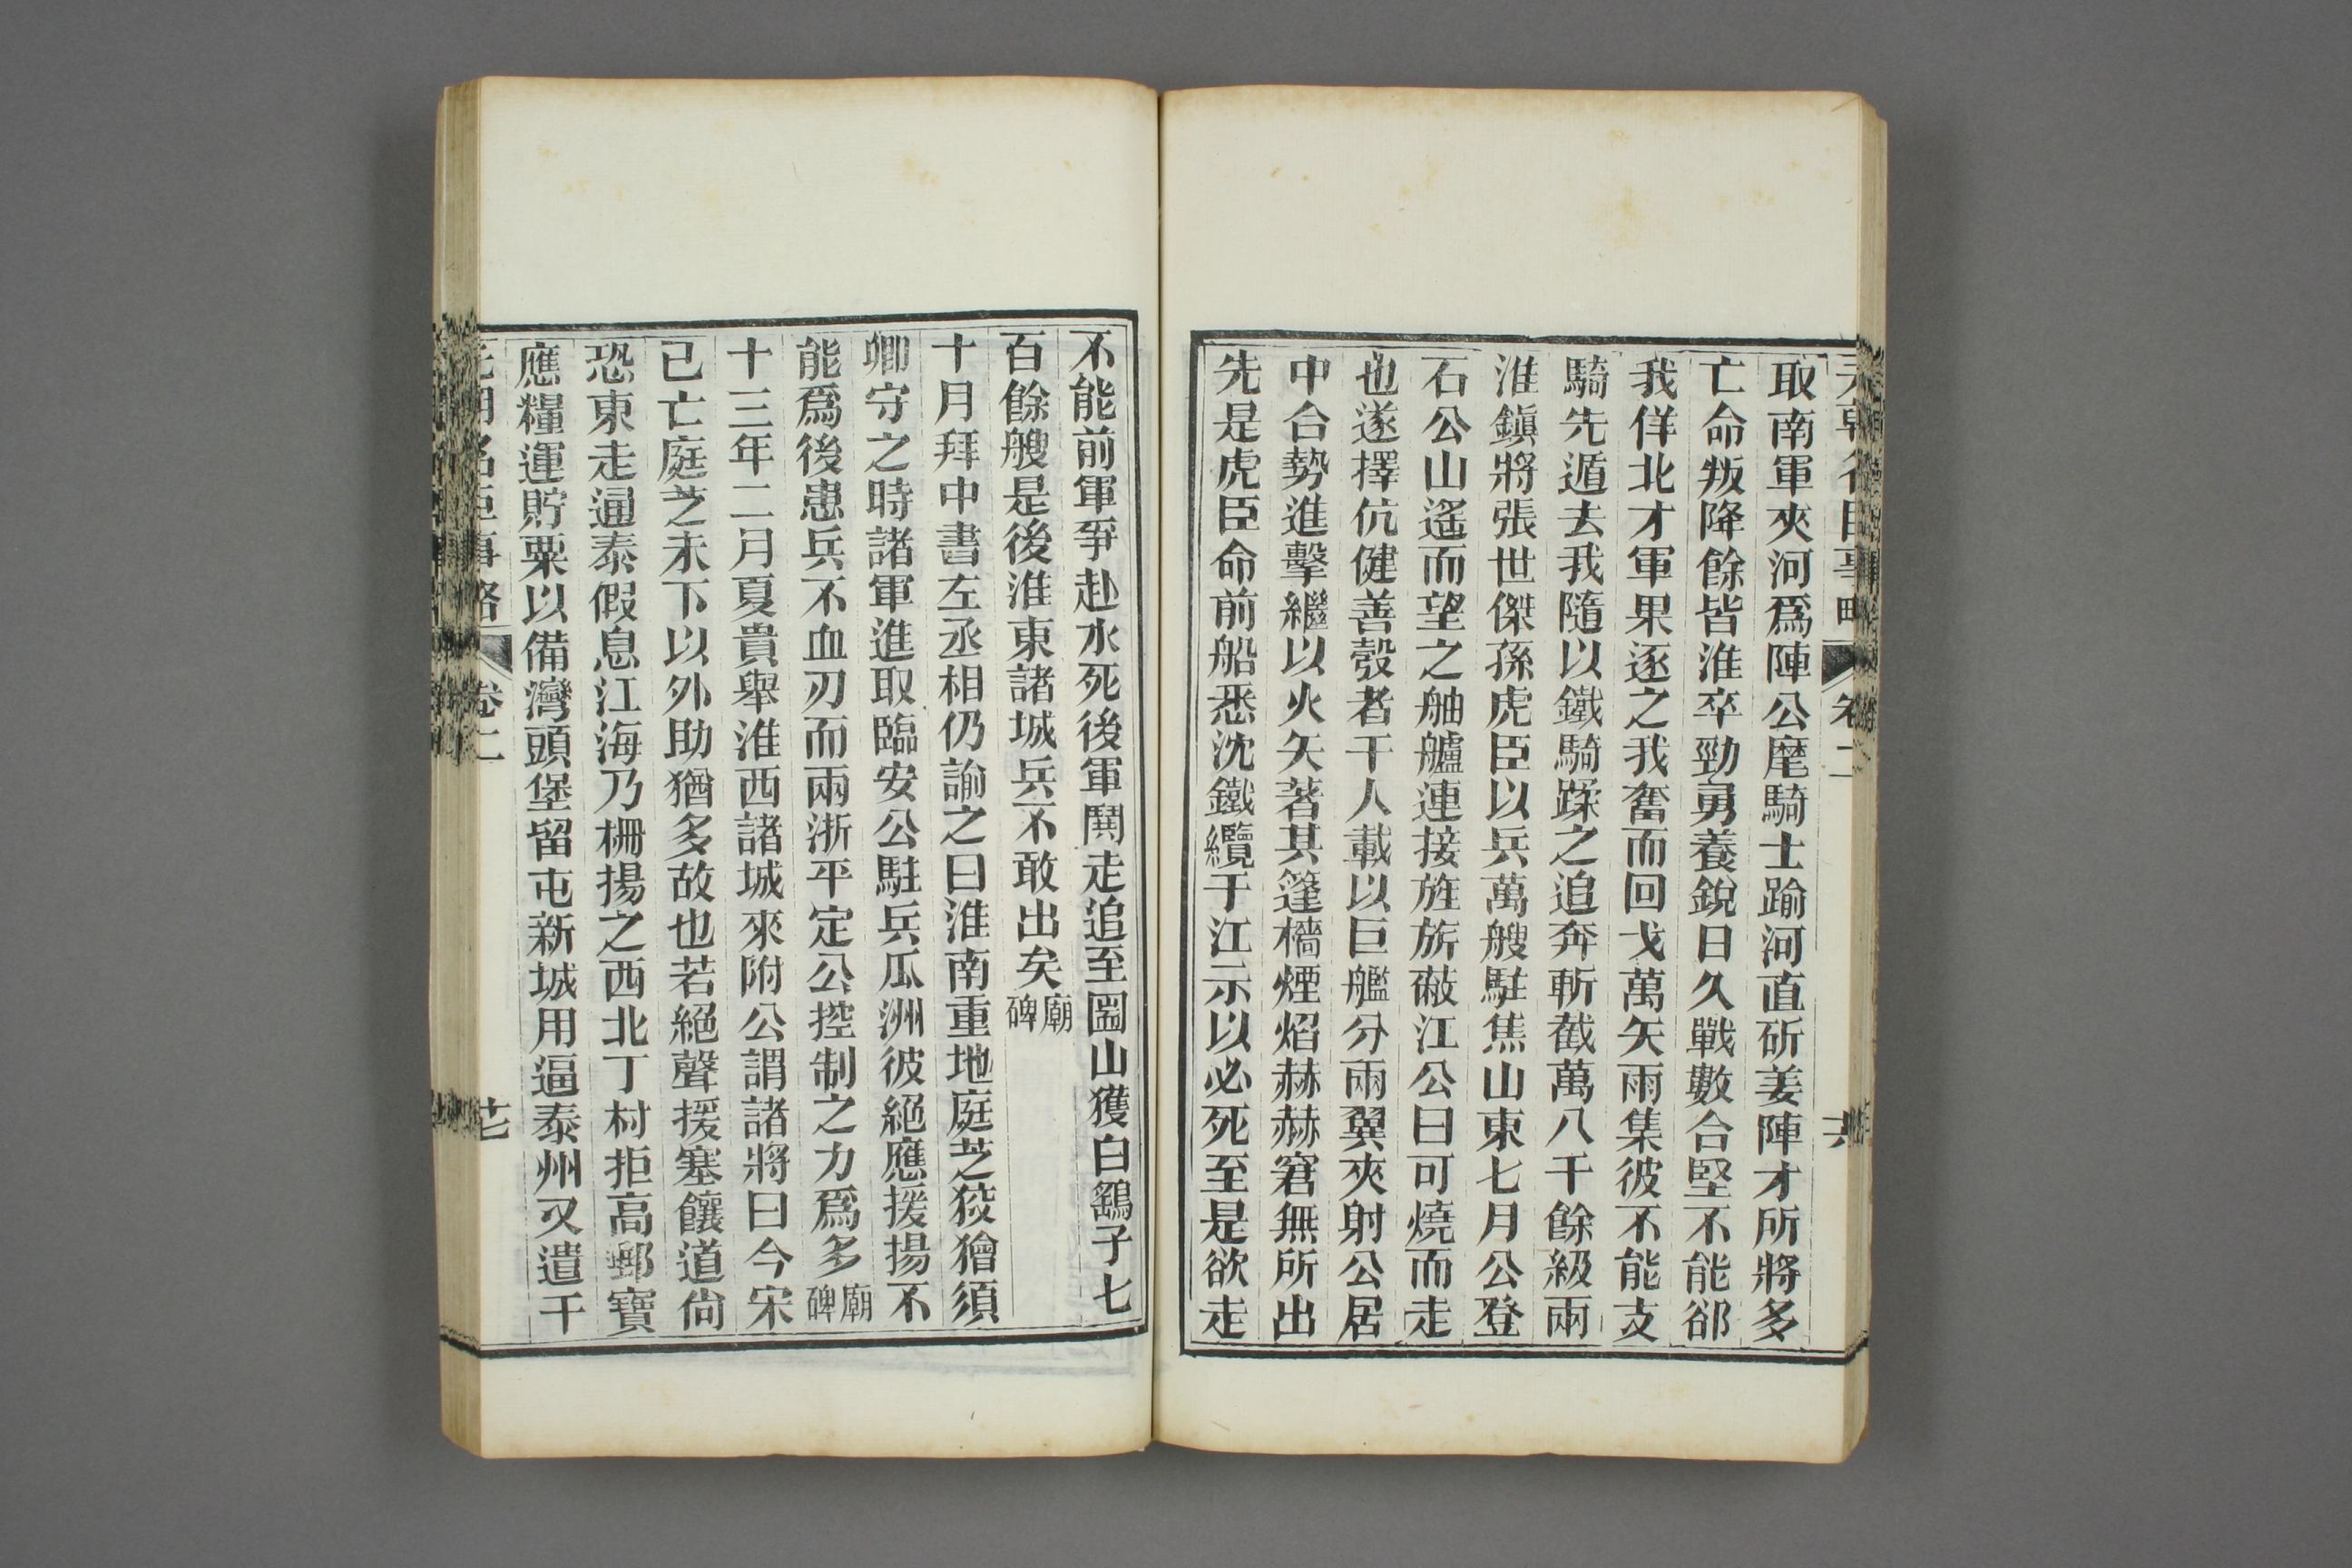 取南軍夾河爲陣公麾騎士踰河直斫姜陣才所將多
亡命叛降餘皆淮卒勁勇養銳日久戰數合堅不能卻
我佯北才軍果逐之我奮而回戈萬矢雨集彼不能支
騎先遁去我隨以鐵騎蹂之追奔斬截萬八千餘級兩
淮鎭將張世傑孫虎臣以兵萬艘駐焦山東七月公登
石公山遙而望之舳艫連接旌旂蔽江公曰可燒而走
也遂擇伉健善彀者千人載以巨艦分兩翼夾射公居
中合勢進擊繼以火矢著其篷檣煙焰赫赫窘無所出
先是虎臣命前船悉沈鐵纜于江示以必死至是欲走
不能前軍爭赴水死後軍鬨走追至圌山獲白鷂子七
百餘艘是後淮東諸城兵不敢出矣廟碑
十月拜中書左丞相仍諭之曰淮南重地庭芝狡獪須
卿守之時諸軍進取臨安公駐兵瓜洲彼絕應援揚不
能爲後患兵不血刃而兩浙平定公控制之力爲多廟碑
十三年二月夏貴舉淮西諸城來附公謂諸將曰今宋
已亡庭芝未下以外助猶多故也若絕聲援塞饟道尙
恐東走通泰假息江海乃柵揚之西北丁村拒高郵寶
應糧運貯粟以備灣頭堡留屯新城用逼泰州又遣千
卷二